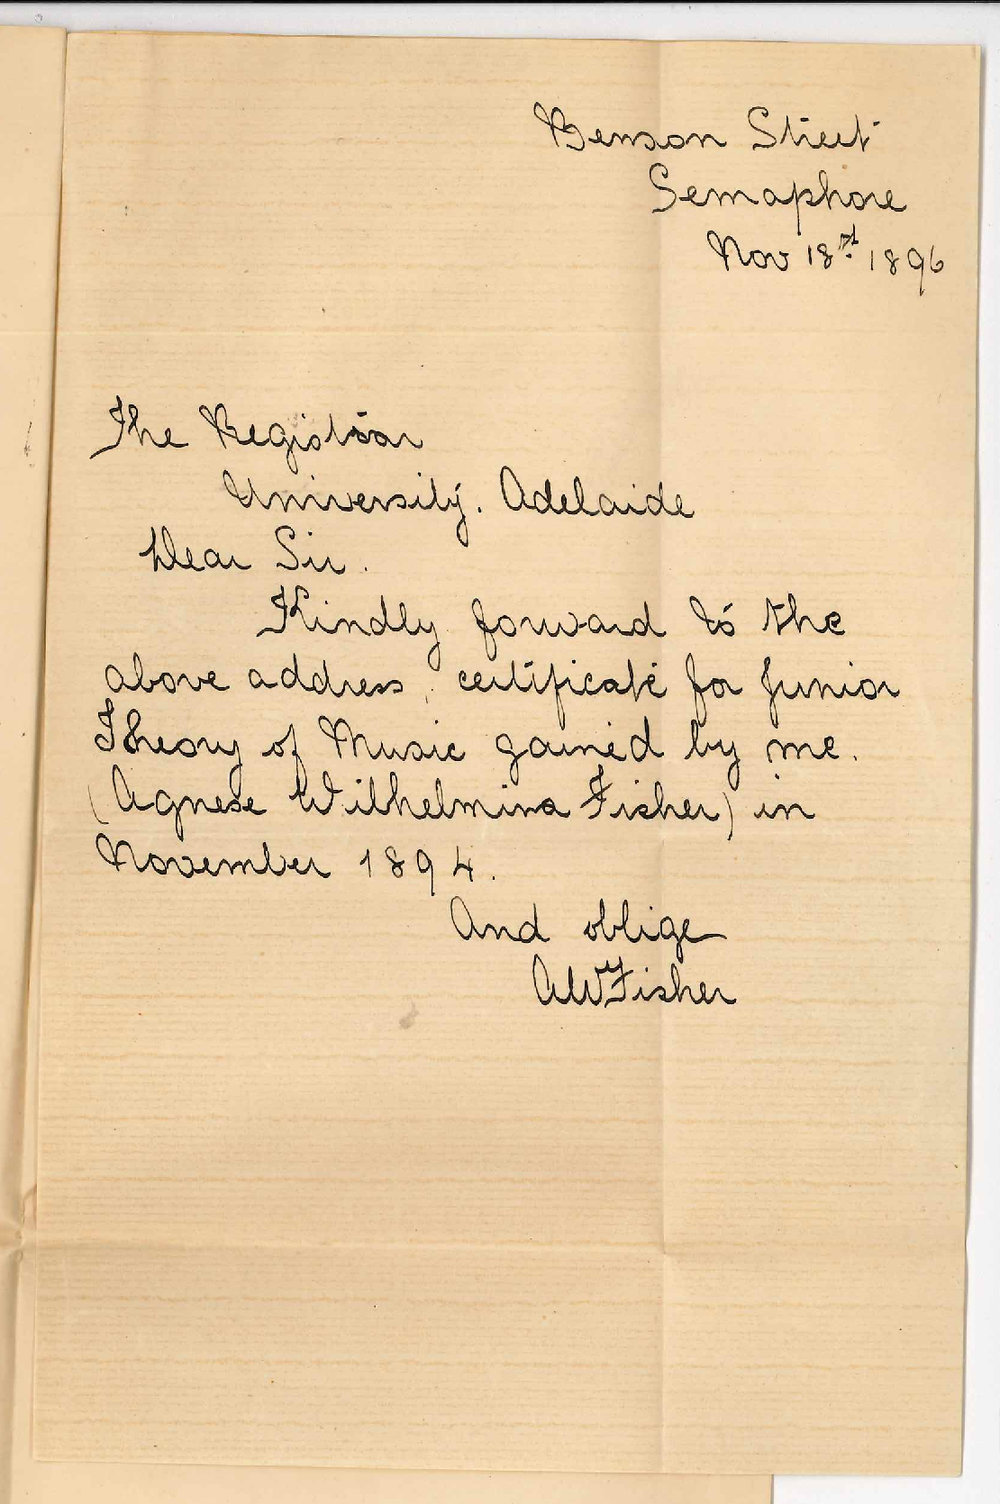 Benson Street
Semaphore
Nov 18st 1896
The Registrar
University. Adelaide
Dear Sir.
Kindly forward to the
above address, certificate for Junior
Theory of Music gained by me.
(Agnese Wilhelmina Fisher) in
November 1894.
And oblige
AWFisher